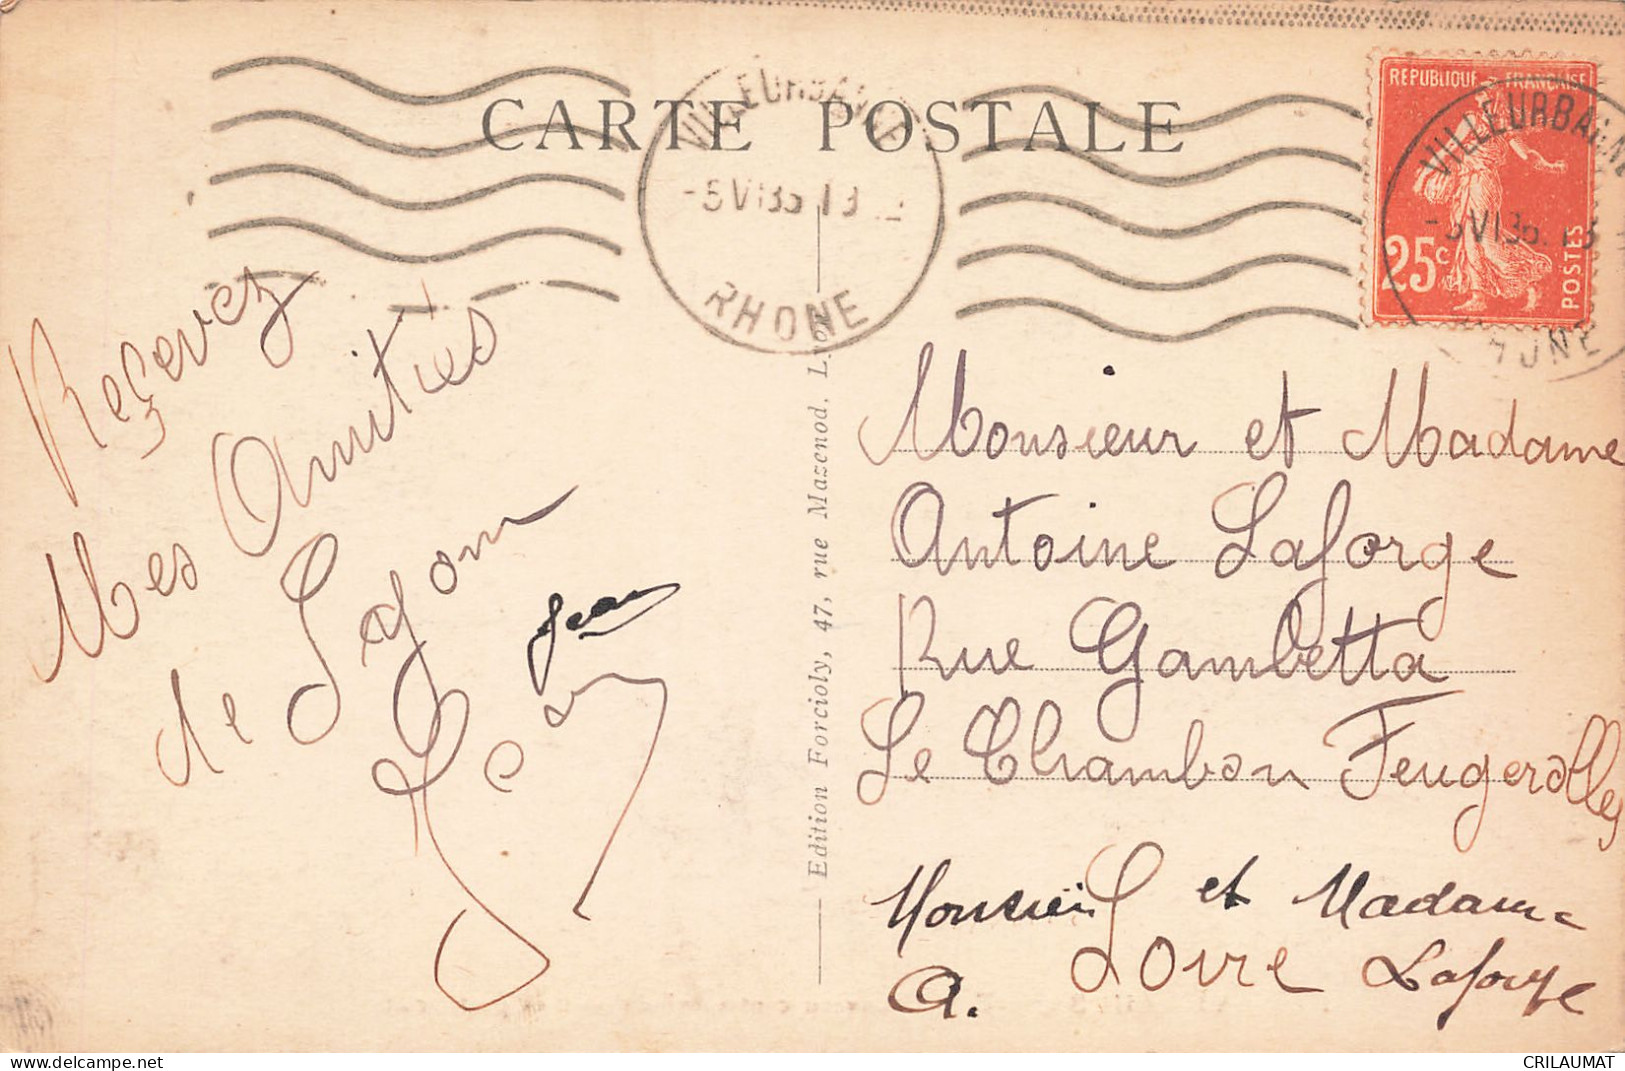 CARTE POSTALE
VILLEURBANNE
-5 VI 35 13
RHONE
REPUBLIQUE FRANCAISE
25c
POSTES
VILLEURBANNE
-5 VI 35. 13
RHONE
Reçevez
Mes Amitiés
de Lyon
Jean
Jean
Edition Forcioly, 47, rue Mazenod. Lyon
Monsieur et Madame
Antoine Laforge
Rue Gambetta
Le Chambon Feugerolles
Monsieur et Madame
A. Loire Laforge
CRILAUMAT